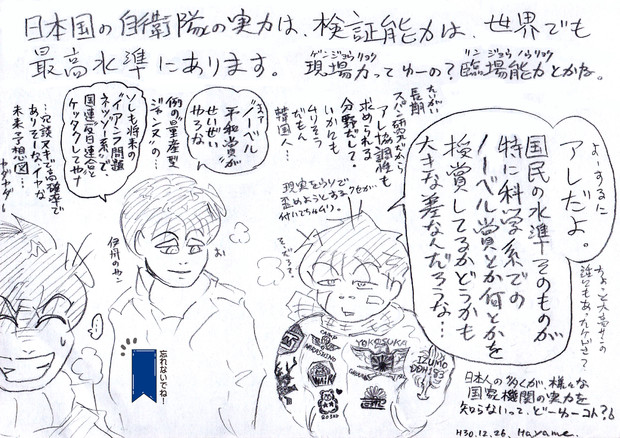 日本国の自衛隊の実力は、検証能力は、世界でも
最高水準にあります。
ゲンジョウリョク
現場力ってゆーの？
リンジョウノウリョク
臨場能力とかな。
よーするに
アレだよ。
国民の水準そのものが
特に科学系での
ノーベル賞とか何とかを
授賞してるかどうかも
大きな差なんだろうな…
ちょっと大きサンの
スパン研究だから
長期
アレ協調性も
求められる
分野だして。
いかんせん
ムリそう
だもん
韓国人…
現実をウソで
歪めようとするクセが
付いてちゃムリ。
ええ
ノーベル
平和賞が
せいぜい
やろな
例の量産型
ジャンヌの…
ソレも将来の
イアンフ問題
ネッツー系で、
国連反日連合と
ケッタクしてやナ
…冗談ヌキで高確率で
ありそーな、イヤな
未来予想図…
ヤダヤダー
伊丹のやン
忘れないでね!
YOKOSUKA
IZUMO
DDH183
日本人の多くが、様々な
国家機関の実力を
知らないって、どーゆーコト？
H30.12.26. Hayame.